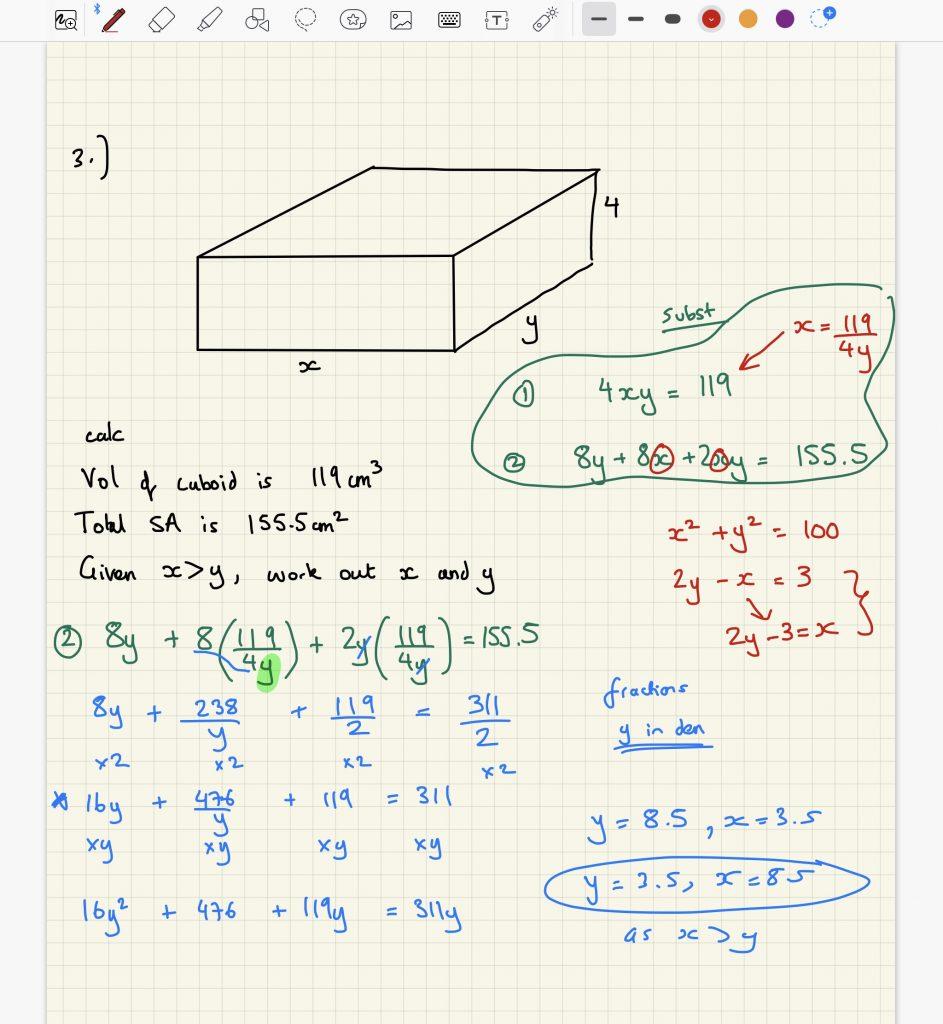 3.)
4
y
x
subst
x = 119/4y
① 4xy = 119
② 8y + 8x + 2xy = 155.5
calc
Vol of cuboid is 119 cm³
Total SA is 155.5 cm²
Given x > y, work out x and y
x² + y² = 100
2y - x = 3
2y - 3 = x
② 8y + 8(119/4y) + 2y(119/4y) = 155.5
8y + 238/y + 119/2 = 311/2
×2 ×2 ×2 ×2
fractions
y in den
16y + 476/y + 119 = 311
×y ×y ×y ×y
16y² + 476 + 119y = 311y
y = 8.5, x = 3.5
y = 3.5, x = 8.5
as x > y